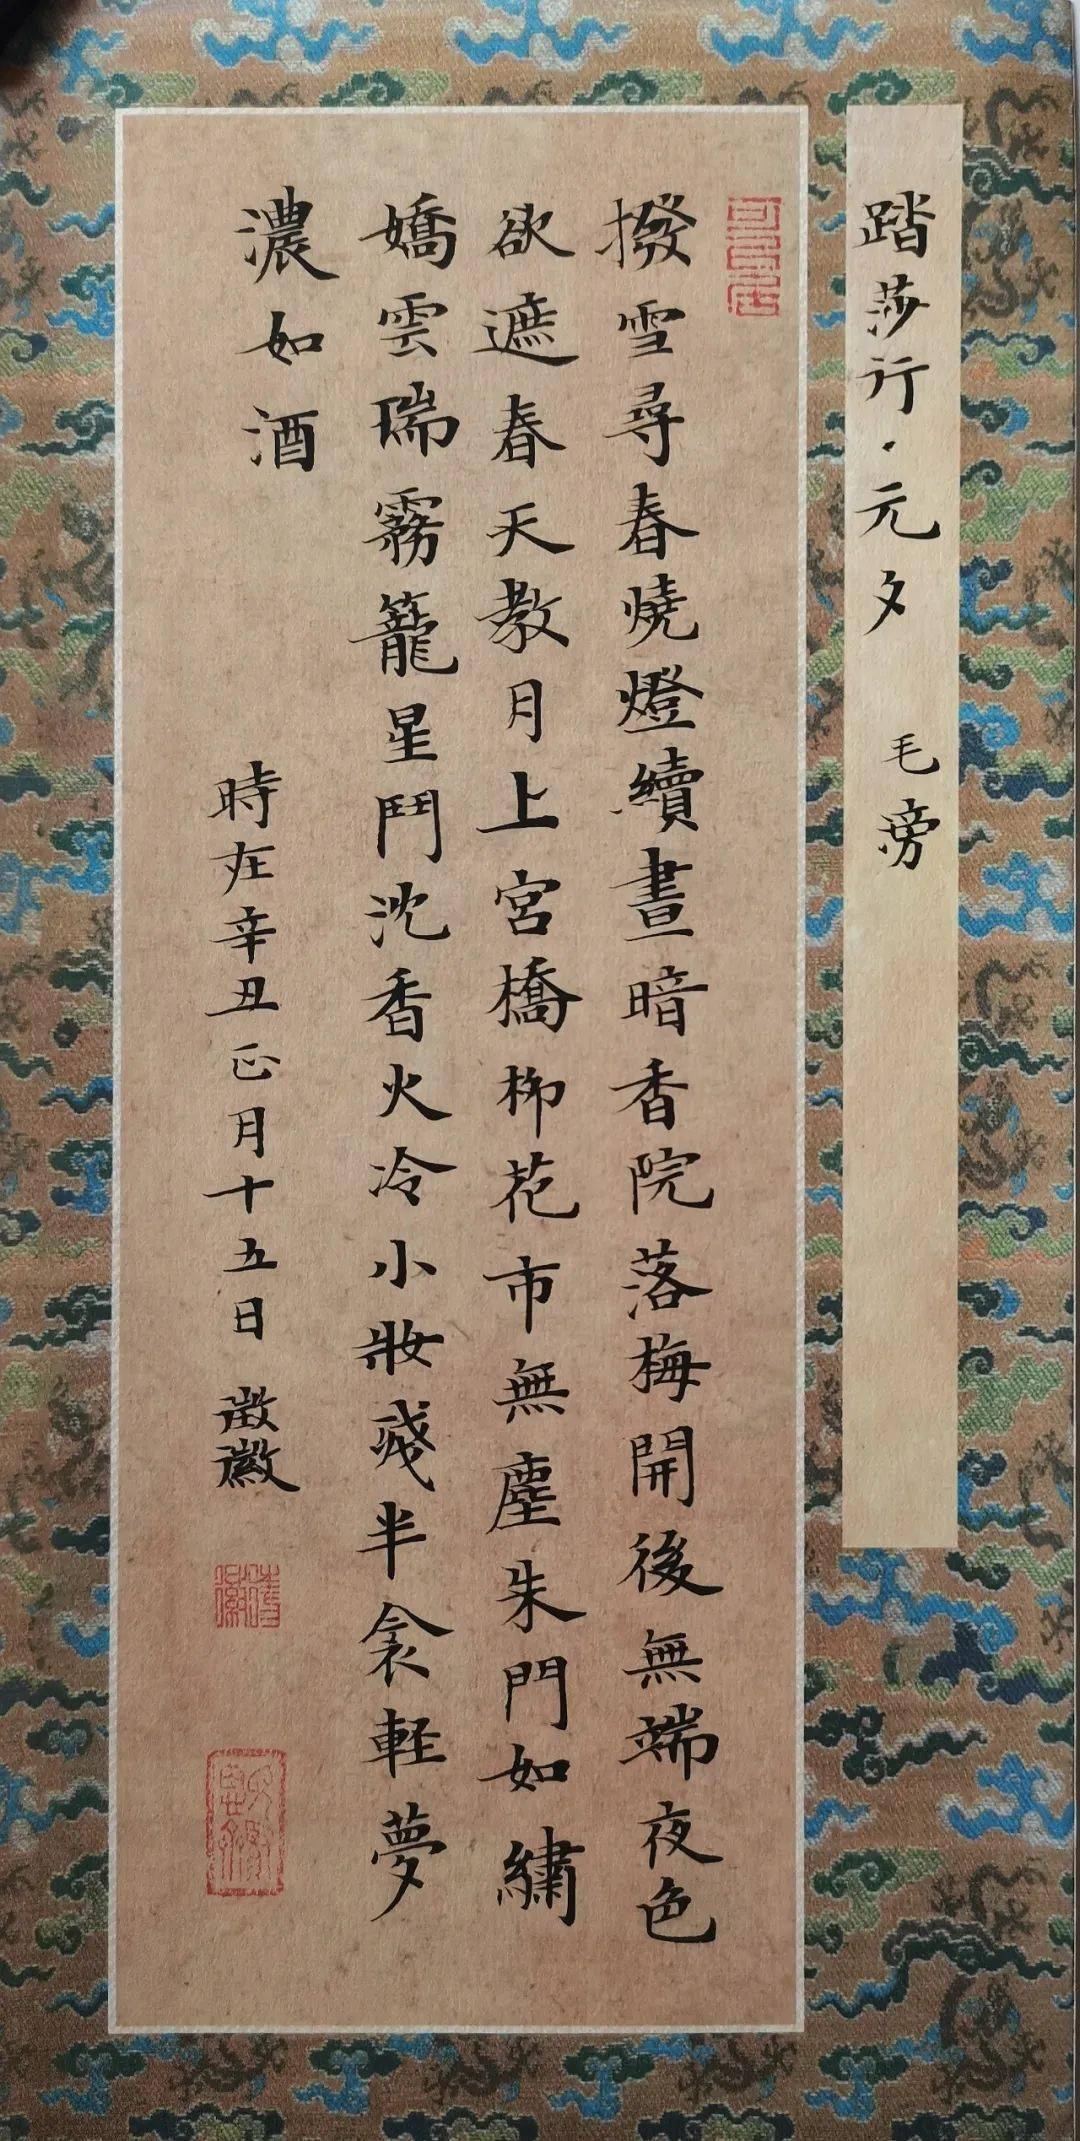 踏莎行·元夕 毛滂
撥雪尋春燒燈續晝暗香院落梅開後無端夜色
欲遮春天教月上宮橋柳花市無塵朱門如繡
嬌雲瑞霧籠星鬥沈香火冷小妝殘半衾輕夢
濃如酒
時在辛丑正月十五日